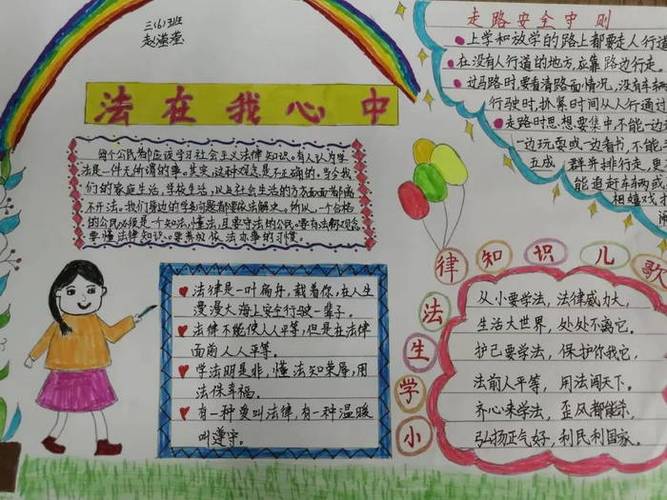 三(6)班
法在我心中
每个公民都应该学习社会主义法律知识。有人认为学
法是一件无所谓的事。其实,这种观点是不正确的。当今我
们的家庭生活,学校生活,以及社会生活的方方面面都离
不开法。我们身边的学多问题都要依法解决。所以,一个合格
的公民必须是一个知法,懂法,且要守法的公民。要有法制观念
要懂法律知识。要养成依法办事的习惯。
法律是一叶扁舟,载着你,在人生
漫漫大海上安全行驶一辈子。
法律不能使人人平等,但是在法律
面前人人平等。
学法明是非,懂法知荣辱,用
法保幸福。
有一种爱叫法律,有一种温暖
叫遵守。
走路安全守则
上学和放学的路上都要走人行道
在没有人行道的地方,应靠路边行走。
过马路时,要看清路面情况,没有车辆
行驶时,抓紧时间从人行道
走路时思想要集中不能一边
一边玩耍或一边看书,不能三
五成群并排行走,更
能追赶车辆或
相嬉戏
小学生法律知识儿歌
从小要学法,法律威力大,
生活大世界,处处不离它。
护己要学法,保护你我它。
法前人平等,用法闯天下。
齐心来学法,歪风都能杀,
弘扬正气好,利民利国家。